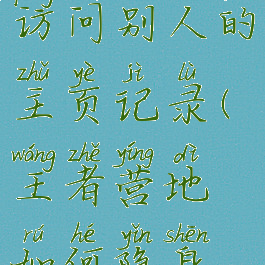 访问别人的
zhǔ yè jì lù
主页记录(
wáng zhě yíng dì
王者营地
rú hé yǐn shēn
如何隐身